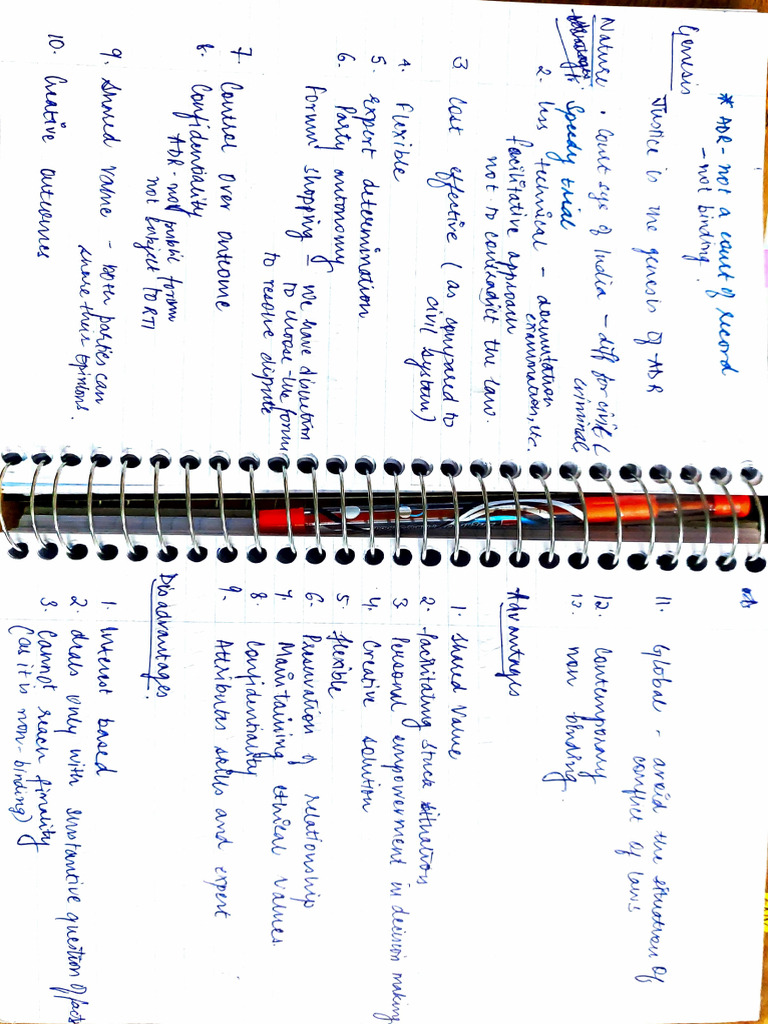 * ADR - not a court of record
- not binding.
Genesis
Justice is the genesis of ADR
Nature • Court sys of India - diff for civil &
criminal
1. Speedy trial
2. less technical - documentation
examination, etc.
facilitative approach
not to contradict the law.
3 Cost effective (as compared to
civil system)
4. Flexible
5. Expert determination
6. Party autonomy
Forum shopping = We have discretion
to choose the forum
to resolve dispute
7. Control over outcome
8. Confidentiality
ADR - not public forum
not subject to RTI
9. Shared Value - both parties can
share their opinions.
10. Creative outcomes
11. Global - avoid the situation of
conflict of laws
12. Contemporary
13. non binding.
Advantages
1. Shared Value
2. facilitating stuck situations
3 Personal empowerment in decision making
4. Creative solution
5. flexible
6. Preservation of relationship
7. Maintaining ethical values.
8. Confidentiality
9. Attributes skills and expert
Disadvantages.
1. Interest based
2. deals only with substantive question of facts
3. Cannot reach finality
(as it is non-binding)